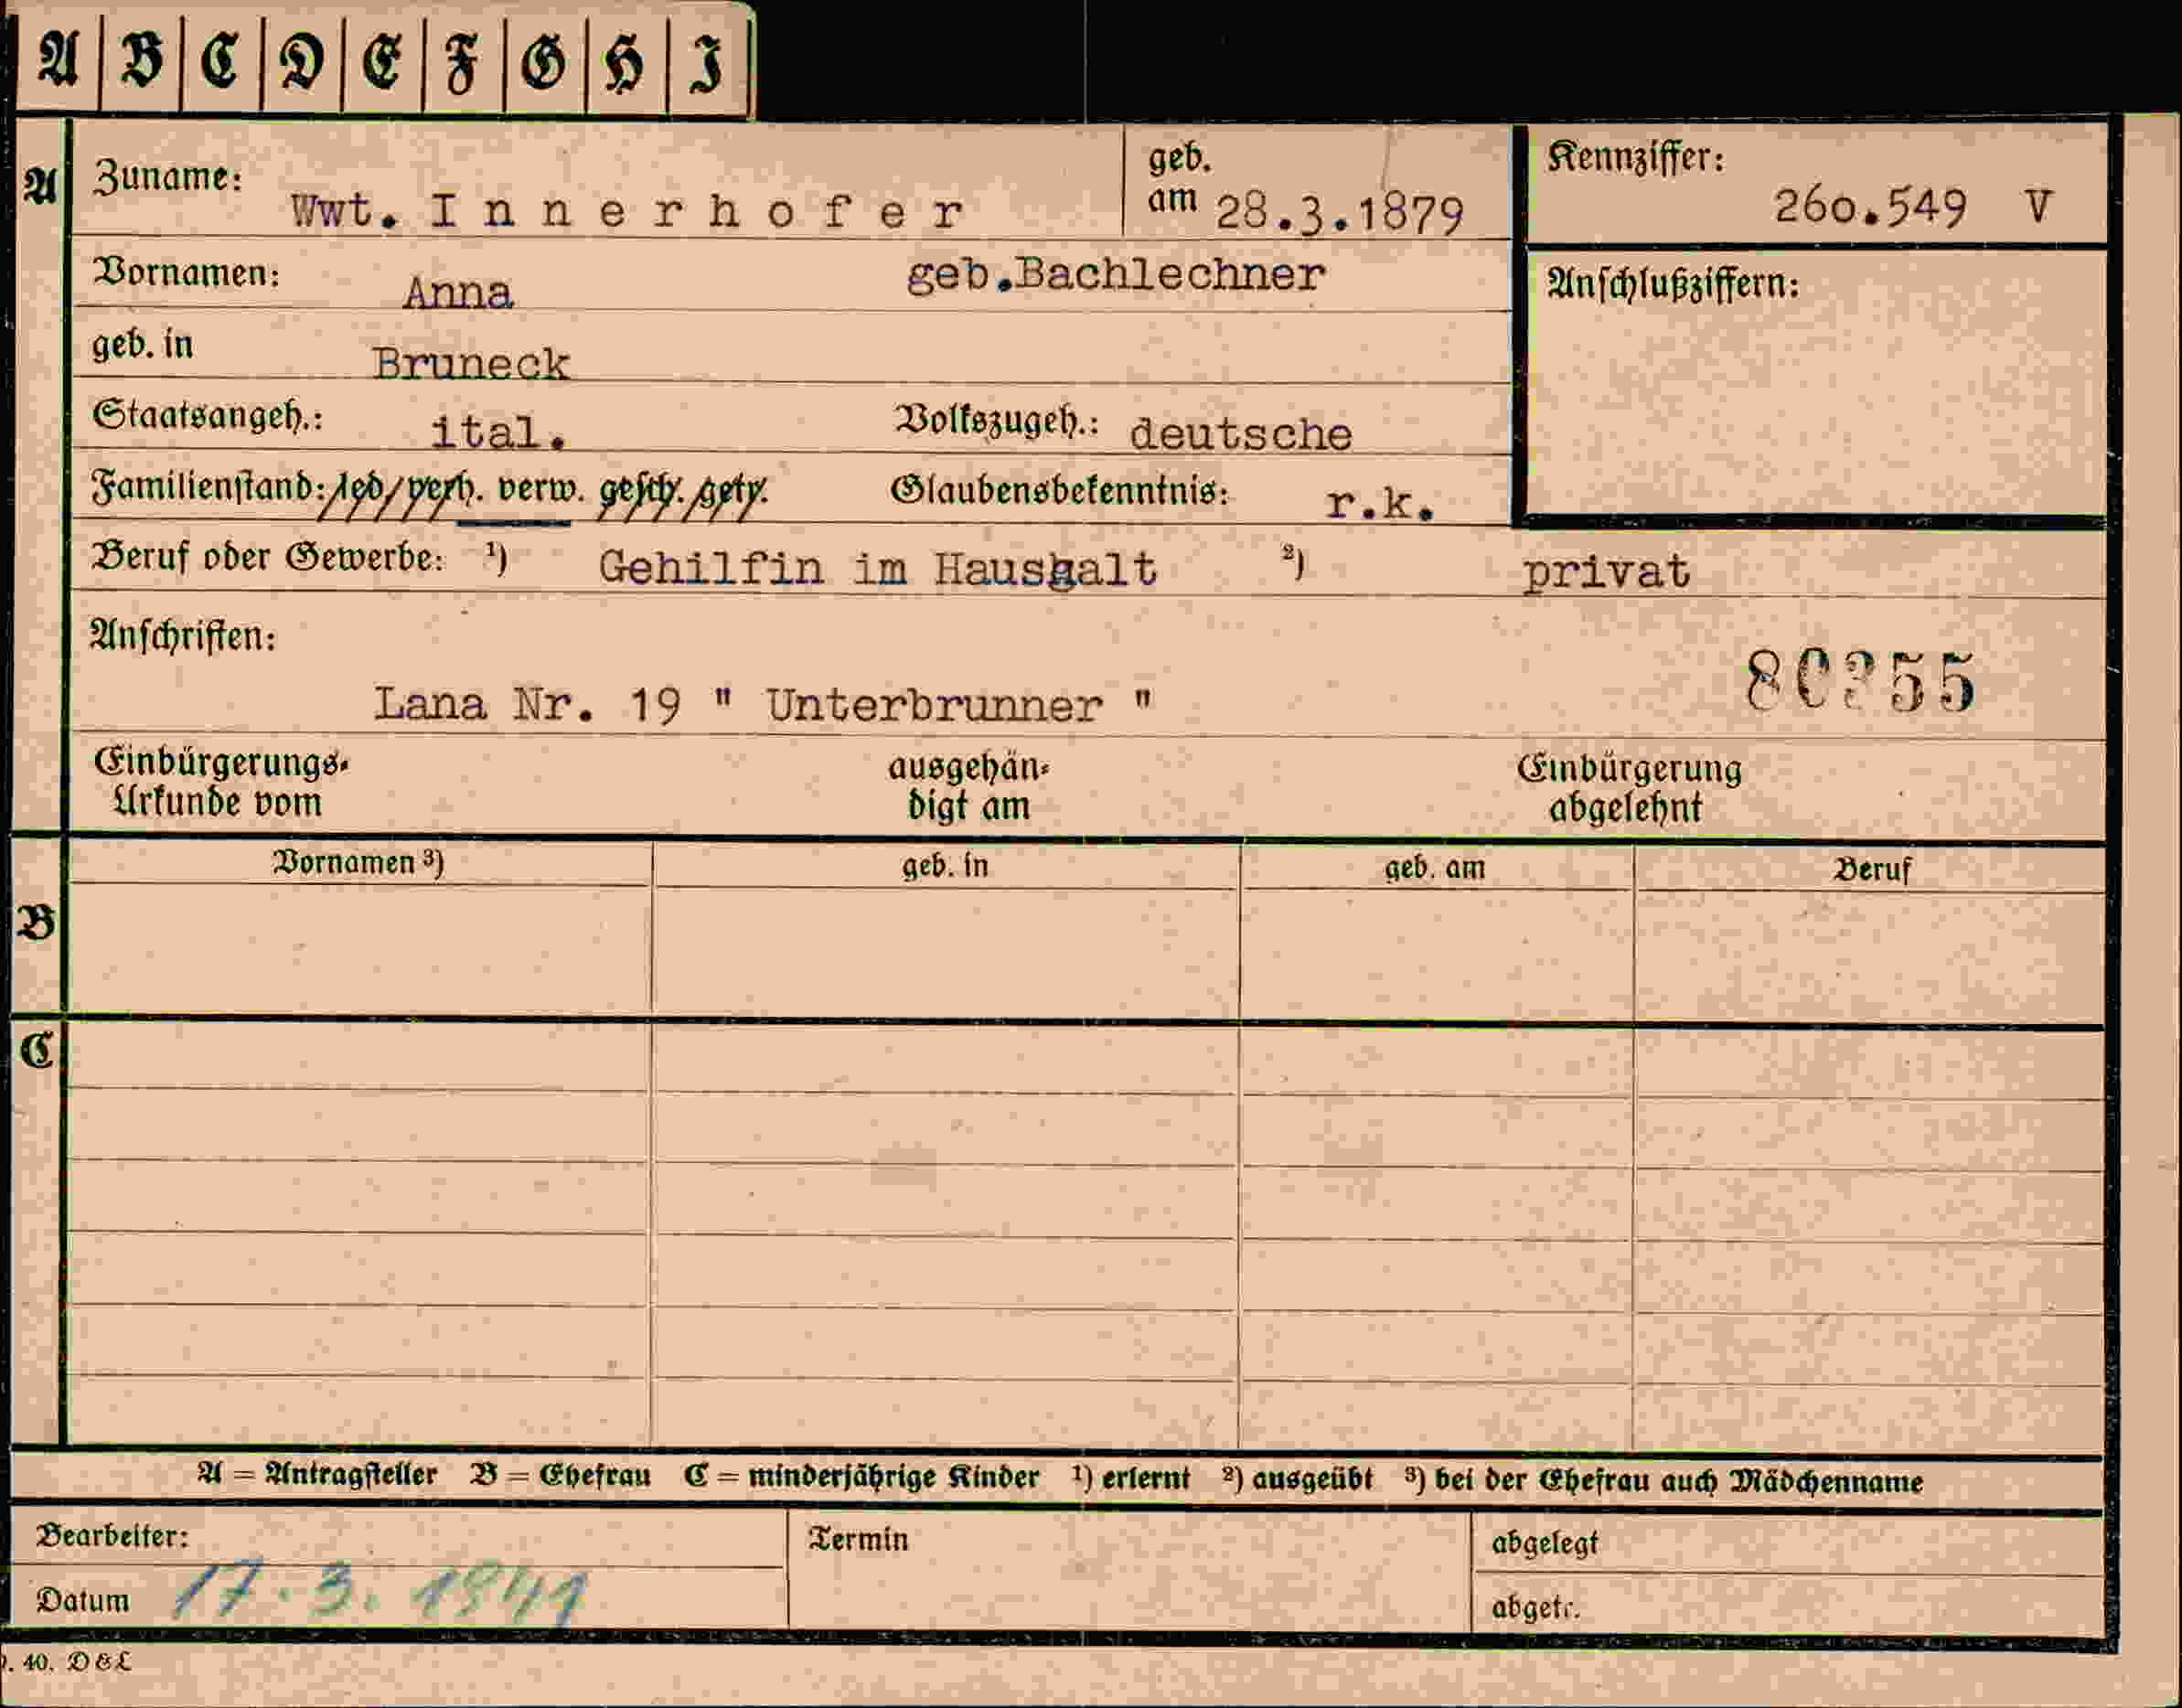 A B C D E F G H I
A Zuname: Wwt. Innerhofer geb. am 28.3.1879 Kennziffer: 260.549 V
Vornamen: Anna geb.Bachlechner Anschlußziffern:
geb. in Bruneck
Staatsangeh.: ital. Volkszugeh.: deutsche
Familienstand: led. verh. verw. gesch. getr. Glaubensbekenntnis: r.k.
Beruf oder Gewerbe: ¹) Gehilfin im Haushalt ²) privat
Anschriften:
Lana Nr. 19 " Unterbrunner "
Einbürgerungs- ausgehän- Einbürgerung
Urkunde vom digt am abgelehnt
Vornamen ³) geb. in geb. am Beruf
B
C
A = Antragsteller B = Ehefrau C = minderjährige Kinder ¹) erlernt ²) ausgeübt ³) bei der Ehefrau auch Mädchenname
Bearbeiter: Termin abgelegt
Datum 17.3.1941 abgetr.
40. D & L